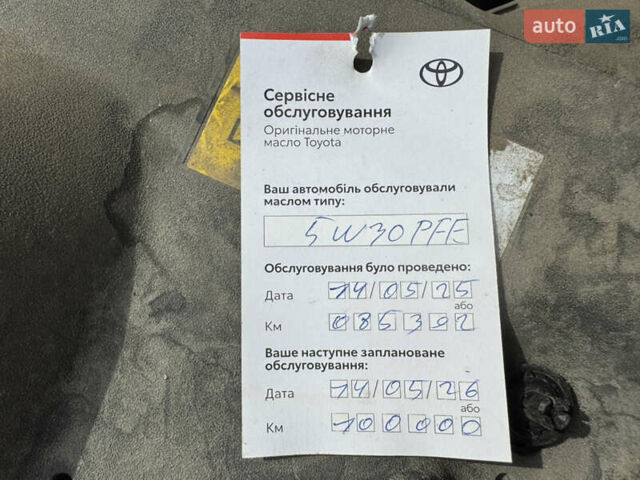 auto RIA.com
Сервісне
обслуговування
Оригінальне моторне
масло Toyota
Ваш автомобіль обслуговували
маслом типу:
5W30PFE
Обслуговування було проведено:
Дата 14/05/25
або
Км 085392
Ваше наступне заплановане
обслуговування:
Дата 14/05/26
або
Км 100000